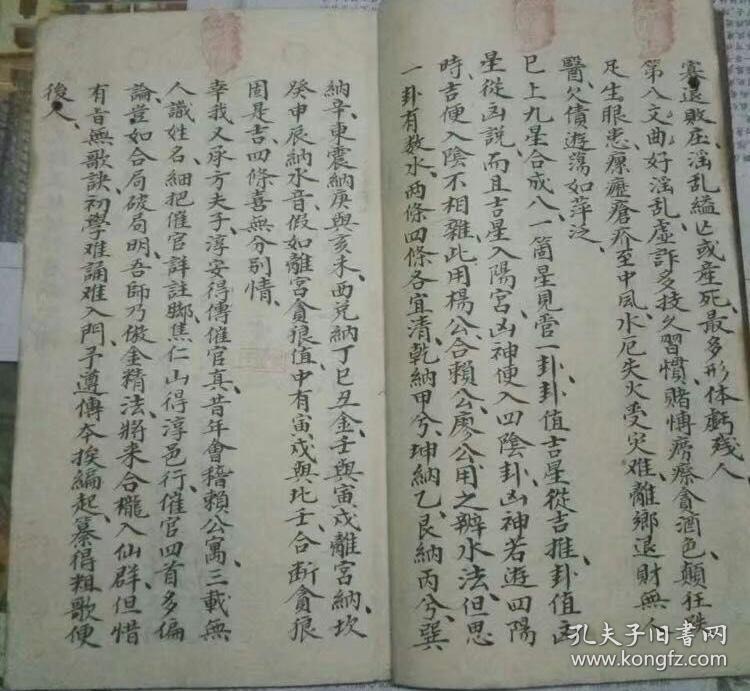 寡退敗庄、淫乱縊亡或産死、最多形体虧残人、
第八文曲好淫乱、虛詐多技久習慣、賭愽癆瘵貪酒色、顛狂跌
足生眼患、瘰癧瘡疥至中風、水厄失火受灾难、離鄉退財無人
醫、欠債遊蕩如萍泛、
已上九星合成八、一箇星見管一卦、卦值吉星從吉推、卦值凶
星從凶説、而且吉星入陽宮、凶神便入四陰卦、凶神若遊四陽
時、吉便入陰不相雜、此用楊公合賴公、廖公用之辨水法、但思
一卦有数水、两條四條各宜清、乾納甲兮、坤納乙、艮納丙兮、巽
納辛、東震納庚與亥未、西兑納丁巳丑金、壬與寅戌離宮納、坎
癸申辰納水音、假如離宮貪狼值、中有寅戌與北壬、合断貪狼
固是吉、四條喜無分别情、
幸我又承方夫子、淳安得傳催官真、昔年會稽賴公寓、三載無
人識姓名、細把催官詳註脚、焦仁山得淳邑行、催官四首多偏
論、豈如合局破局明、吾師乃倣金精法、將来合櫳入仙群、但惜
有音無歌訣、初學难誦难入門、予遵傳本挨編起、纂得粗歌便
後人、
孔夫子旧书网
www.kongfz.com